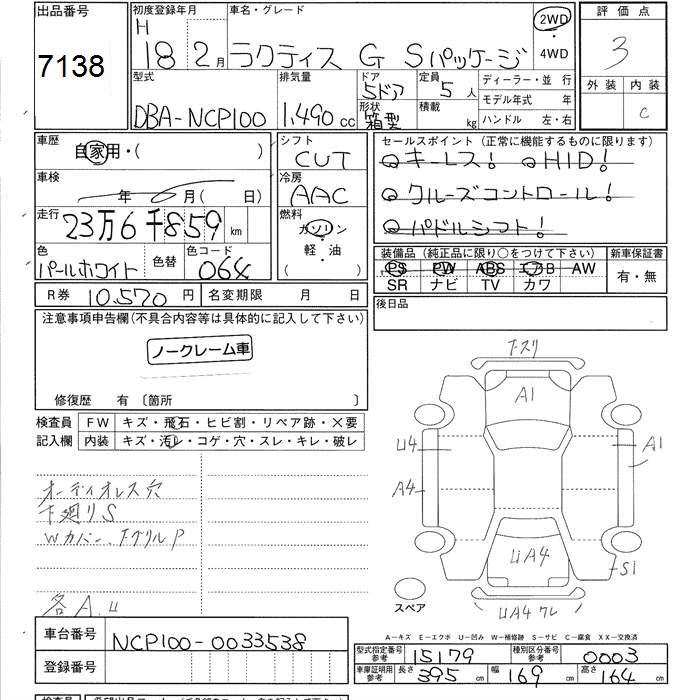 出品番号
7138
初度登録年月
H
18 2月
車名・グレード
ラクティス G Sパッケージ
2WD
・
4WD
評価点
3
外装 内装
C
型式
DBA-NCP100
排気量
1,490 cc
ドア
5ドア
形状
箱型
定員
5人
積載
kg
ディーラー・並行
モデル年式 年
ハンドル 左・右
車歴
自家用・( )
車検
年 6月( 日)
走行
23万6千859 km
色
パールホワイト
色替
色コード
064
シフト
CVT
冷房
AAC
燃料
ガソリン
軽・油
( )
セールスポイント(正常に機能するものに限ります)
キーレス! HID!
クルーズコントロール!
パドルシフト!
装備品(純正品に限り○をつけて下さい)
PS PW ABS エアB AW
SR ナビ TV カワ
新車保証書
有・無
R券 10,570円
名変期限 月 日
後日品
注意事項申告欄(不具合内容等は具体的に記入して下さい)
ノークレーム車
修復歴 有〔箇所 〕
検査員
記入欄
FW キズ・飛石・ヒビ割・リペア跡・×要
内装 キズ・汚レ・コゲ・穴・スレ・キレ・破レ
オーディオレス穴
下廻りS
Wカバー、FグリルP
各A.U
F・スリ
A1
U4
A4
A1
UA4
S1
UA4 ワレ
スペア
車台番号 NCP100-0033538
登録番号
A—キズ E—エクボ U—凹み W—補修跡 S—サビ C—腐食 XX—交換済
型式指定番号
参考
15179
種別区分番号
参考
0003
車庫証明用
参考
長さ 395 cm 幅 169 cm 高さ 164 cm